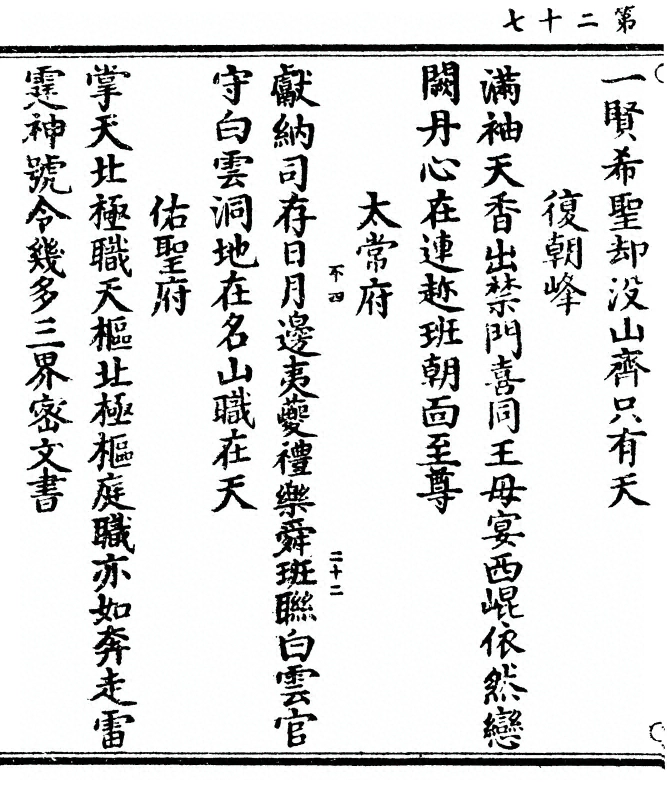 第二十七
一賢希聖却没山齊只有天
復朝峰
滿袖天香出禁門喜同王母宴西崐依然戀
闕丹心在連趂班朝面至尊
太常府
不四
二十二
獻納司存日月邊夷夔禮樂舜班聯白雲官
守白雲洞地在名山職在天
佑聖府
掌天北極職天樞北極樞庭職亦如奔走雷
霆神號令幾多三界宻文書